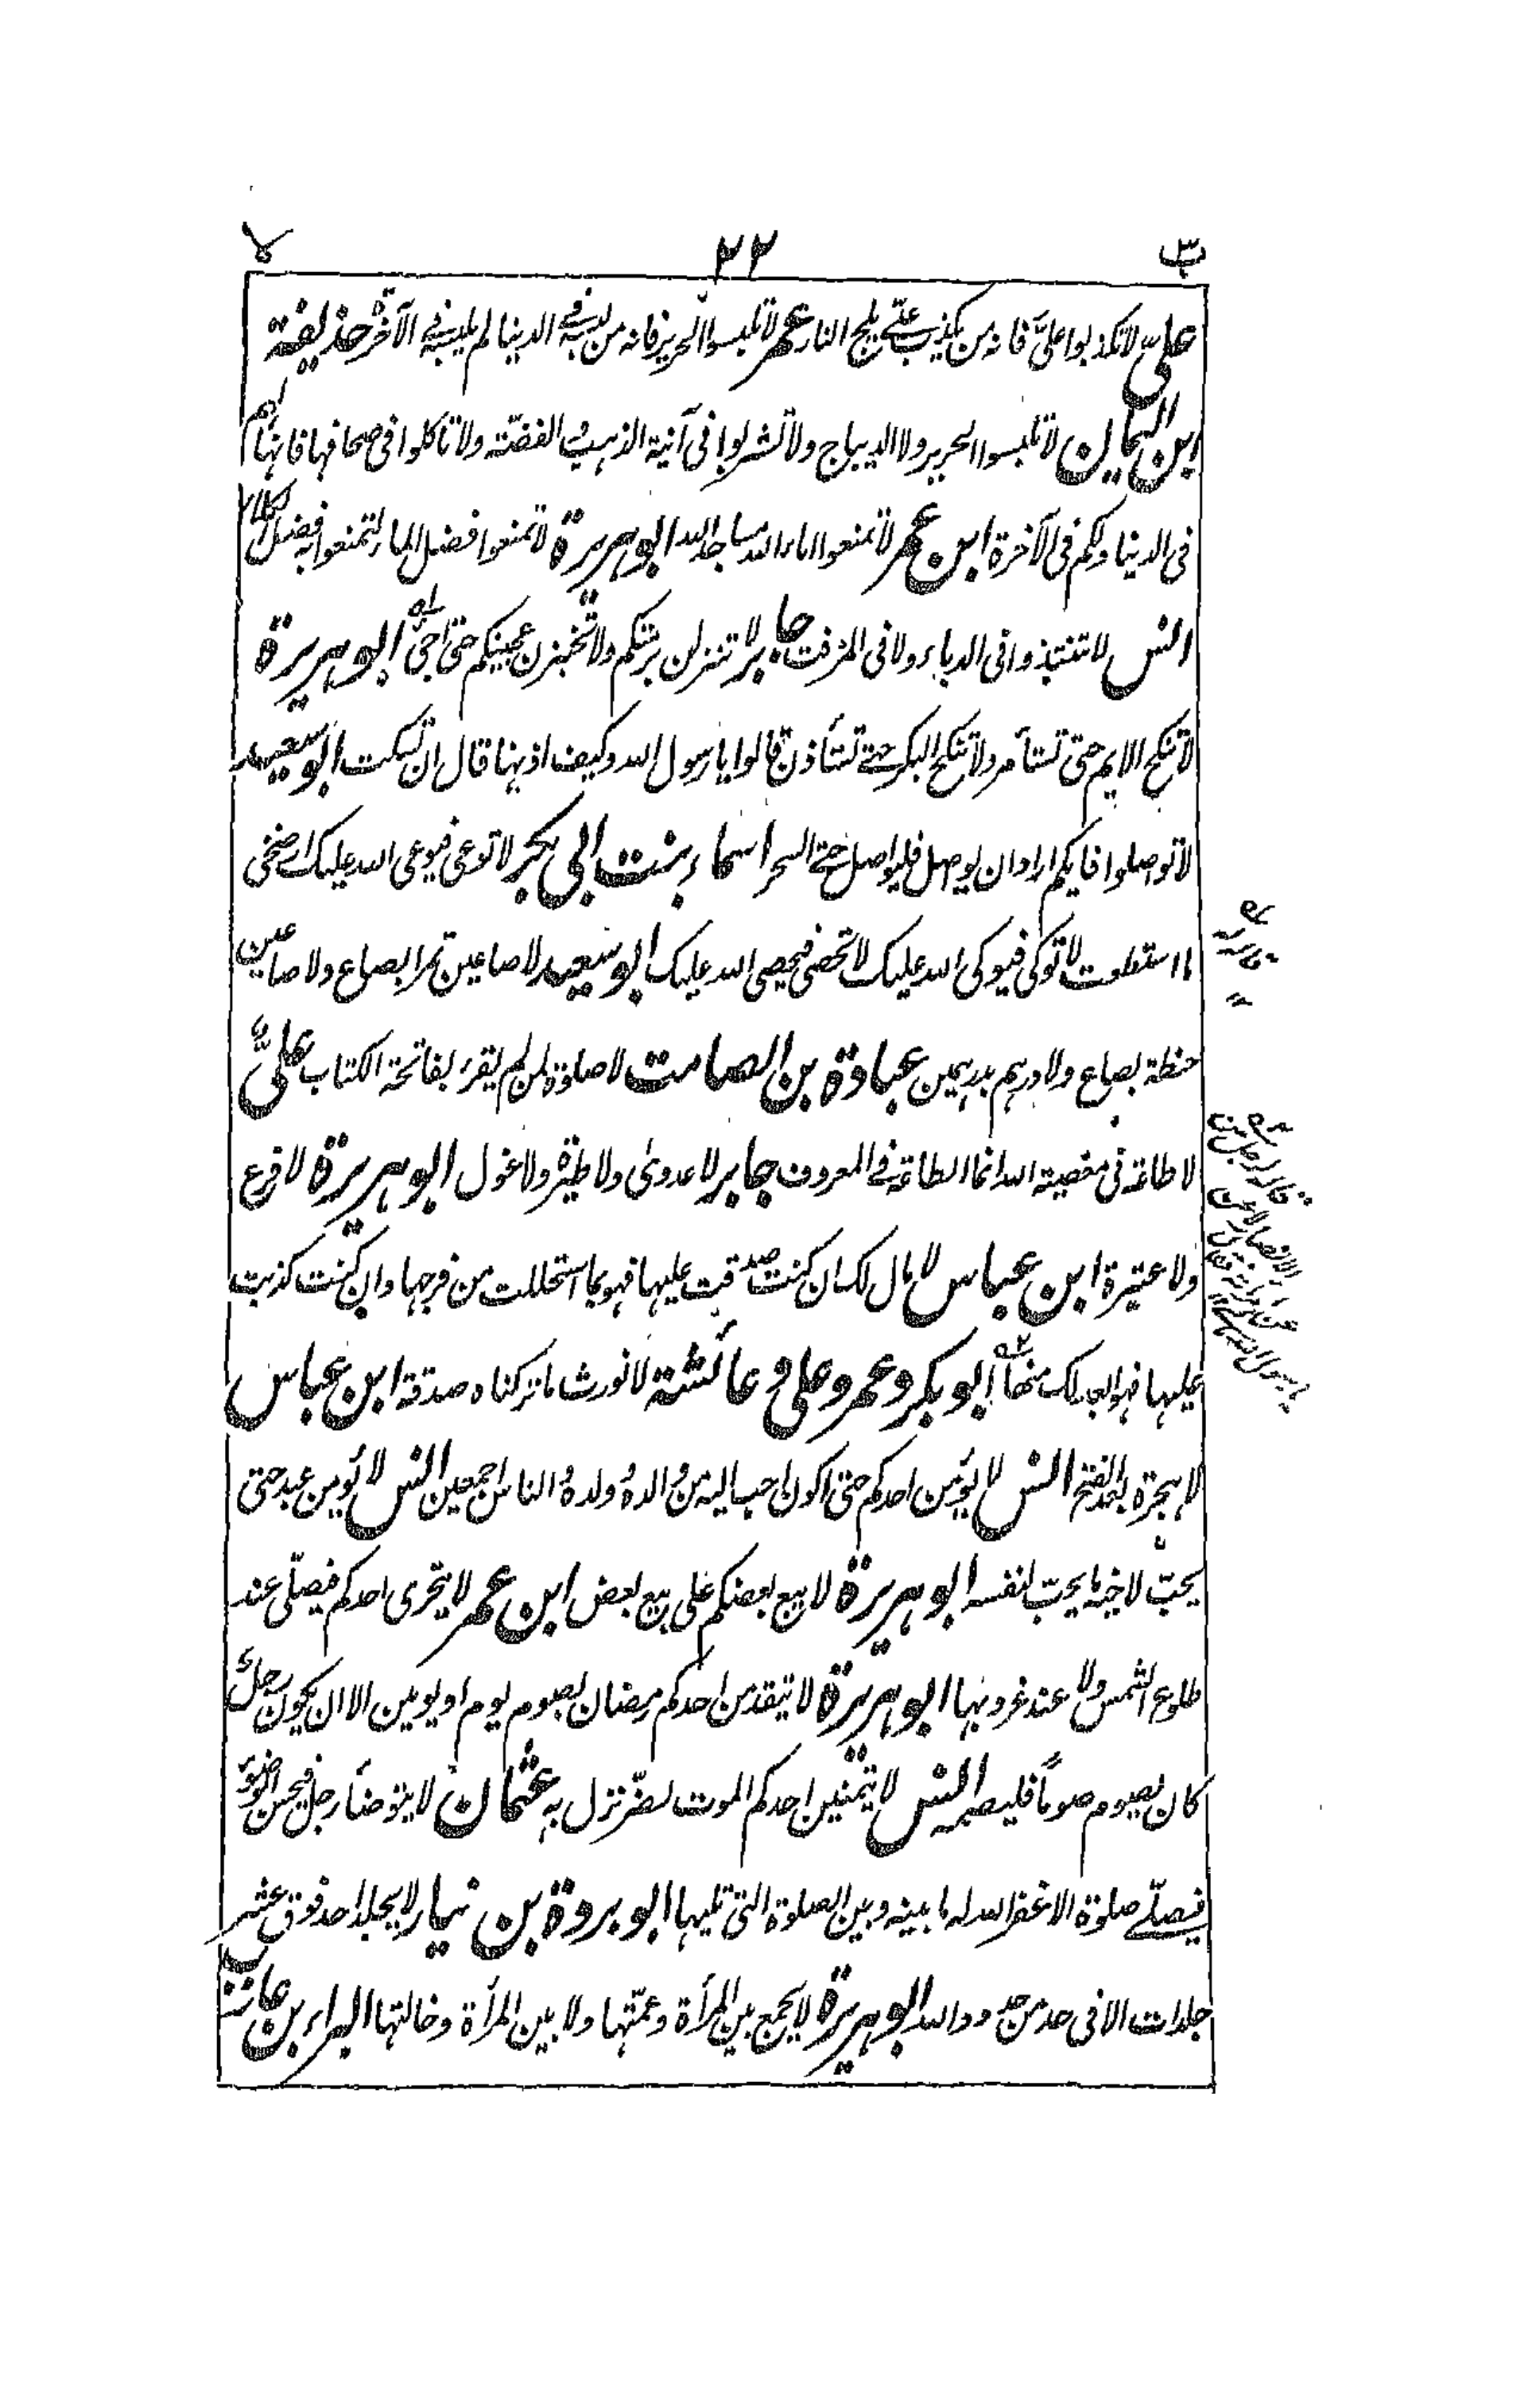 ٢٢
لا
علىّ لا تكذبوا علىّ فانه من يكذب علىّ يلج النار عمر لا تلبسوا الحرير فانه من لبسه فى الدنيا لم يلبسه فى الآخرة حذيفة
ابن اليمان لا تلبسوا الحرير ولا الديباج ولا تشربوا فى آنية الذهب والفضّة ولا تاكلوا فى صحافها فانها لهم
فى الدنيا ولكم فى الآخرة ابن عمر لا تمنعوا اماء الله مساجد الله ابو هريرة لا تمنعوا فضل الماء لتمنعوا به فضل الكلاء
انس لا تنتبذوا فى الدباء ولا فى المزفت جابر لا تنزلن برمتكم ولا تخبزن عجينكم حتى اجئ ابو هريرة
لا تنكح الايم حتى تستأمر ولا تنكح البكر حتى تستأذن قالوا يا رسول الله وكيف اذنها قال ان تسكت ابو سعيد
لا تواصلوا فايكم اراد ان يوصل فليواصل حتى السحر اسماء بنت ابى بكر لا توعى فيوعى الله عليك ارضخى
ما استطعت لا توكى فيوكى الله عليك لا تحصى فيحصى الله عليك ابو سعيد لا صاعين تمرا بصاع ولا صاعين
حنطة بصاع ولا درهم بدرهمين عبادة بن الصامت لا صلوة لمن لم يقرء بفاتحة الكتاب علىّ
لا طاعة فى معصية الله انما الطاعة فى المعروف جابر لا عدوى ولا طيرة ولا غول ابو هريرة لا فرع
ولا عتيرة ابن عباس لا مال لك ان كنت صدقت عليها فهو بما استحللت من فرجها وان كنت كذبت
عليها فهو ابعد لك منها ابو بكر وعمر وعلى وعائشة لا نورث ما تركناه صدقة ابن عباس
لا هجرة بعد الفتح انس لا يؤمن احدكم حتى اكون احب اليه من والده وولده والناس اجمعين انس لا يؤمن عبد حتى
يحبّ لاخيه ما يحبّ لنفسه ابو هريرة لا يبع بعضكم على بيع بعض ابن عمر لا يتحرى احدكم فيصلّى عند
طلوع الشمس ولا عند غروبها ابو هريرة لا يتقدمن احدكم رمضان بصوم يوم او يومين الا ان يكون رجل
كان يصوم صوماً فليصمه انس لا يتمنين احدكم الموت لضرّ نزل به عثمان لا يتوضأ رجل فيحسن الوضوء
فيصلّى صلوة الا غفر الله له ما بينه وبين الصلوة التى تليها ابو بردة بن نيار لا يجلد احد فوق عشر
جلدات الا فى حد من حدود الله ابو هريرة لا يجمع بين المرأة وعمّتها ولا بين المرأة وخالتها البراء بن عازب